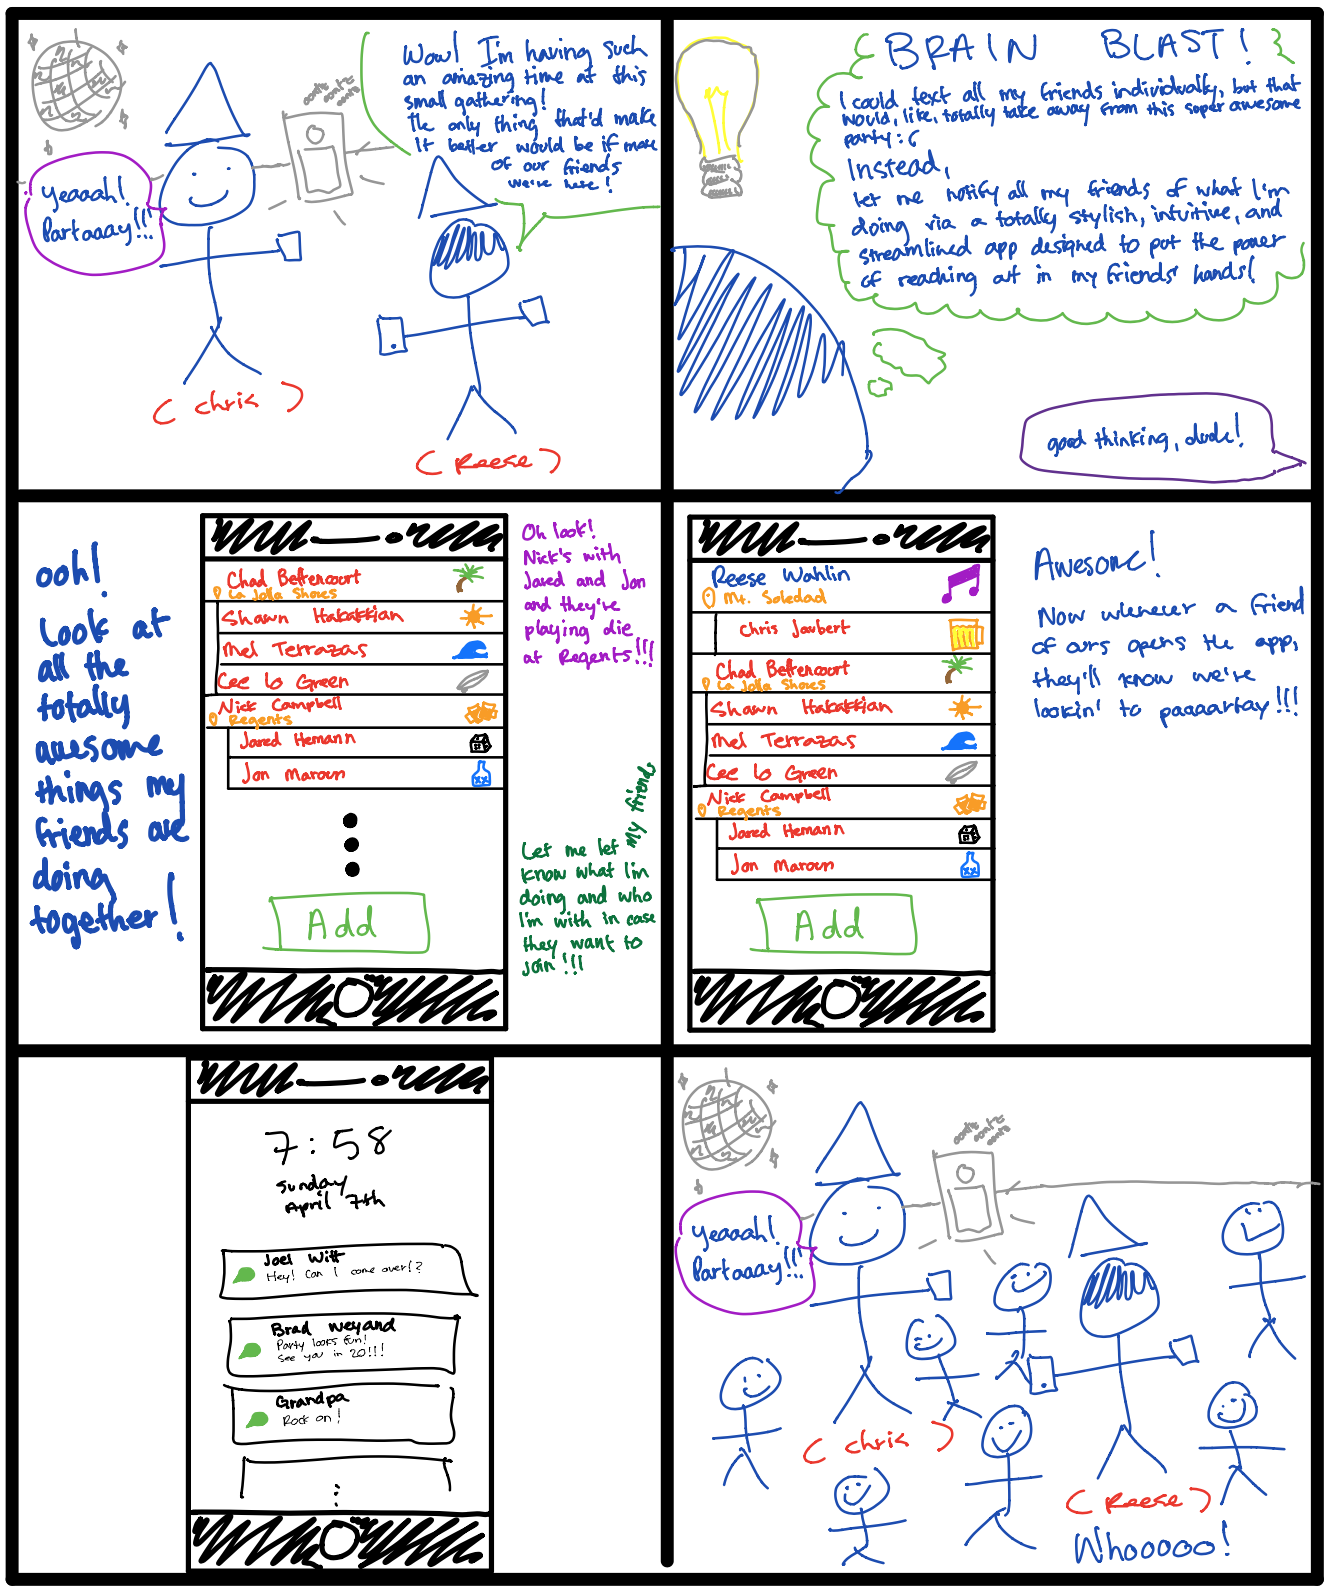 Wow! I'm having such
an amazing time at this
small gathering!
The only thing that'd make
it better would be if more
of our friends
we're here!
oontz
oontz
oontz
Yeaaah!
Partaaay!!!
(Chris)
(Reese)
BRAIN BLAST!
I could text all my friends individually, but that
would, like, totally take away from this super awesome
party :(
Instead,
let me notify all my friends of what I'm
doing via a totally stylish, intuitive, and
streamlined app designed to put the power
of reaching out in my friends' hands!
good thinking, dude!
ooh!
Look at
all the
totally
awesome
things my
friends are
doing
together!
Chad Bettencourt
La Jolla Shores
Shawn Habakkian
Mel Terrazas
Cee Lo Green
Nick Campbell
Regents
Jared Hemann
Jon Maroun
Add
Oh look!
Nick's with
Jared and Jon
and they're
playing die
at Regents!!!
Let me let my friends
know what I'm
doing and who
I'm with in case
they want to
join!!!
Reese Wahlin
Mt. Soledad
Chris Joubert
Chad Bettencourt
La Jolla Shores
Shawn Habakkian
Mel Terrazas
Cee Lo Green
Nick Campbell
Regents
Jared Hemann
Jon Maroun
Add
Awesome!
Now whenever a friend
of ours opens the app,
they'll know we're
lookin' to paaaartay!!!
7:58
Sunday
April 7th
Joel Witt
Hey! Can I come over!?
Brad Weyand
Party looks fun!
See you in 20!!!
Grandpa
Rock on!
oontz
oontz
oontz
Yeaaah!
Partaaay!!!
(Chris)
(Reese)
Whooooo!